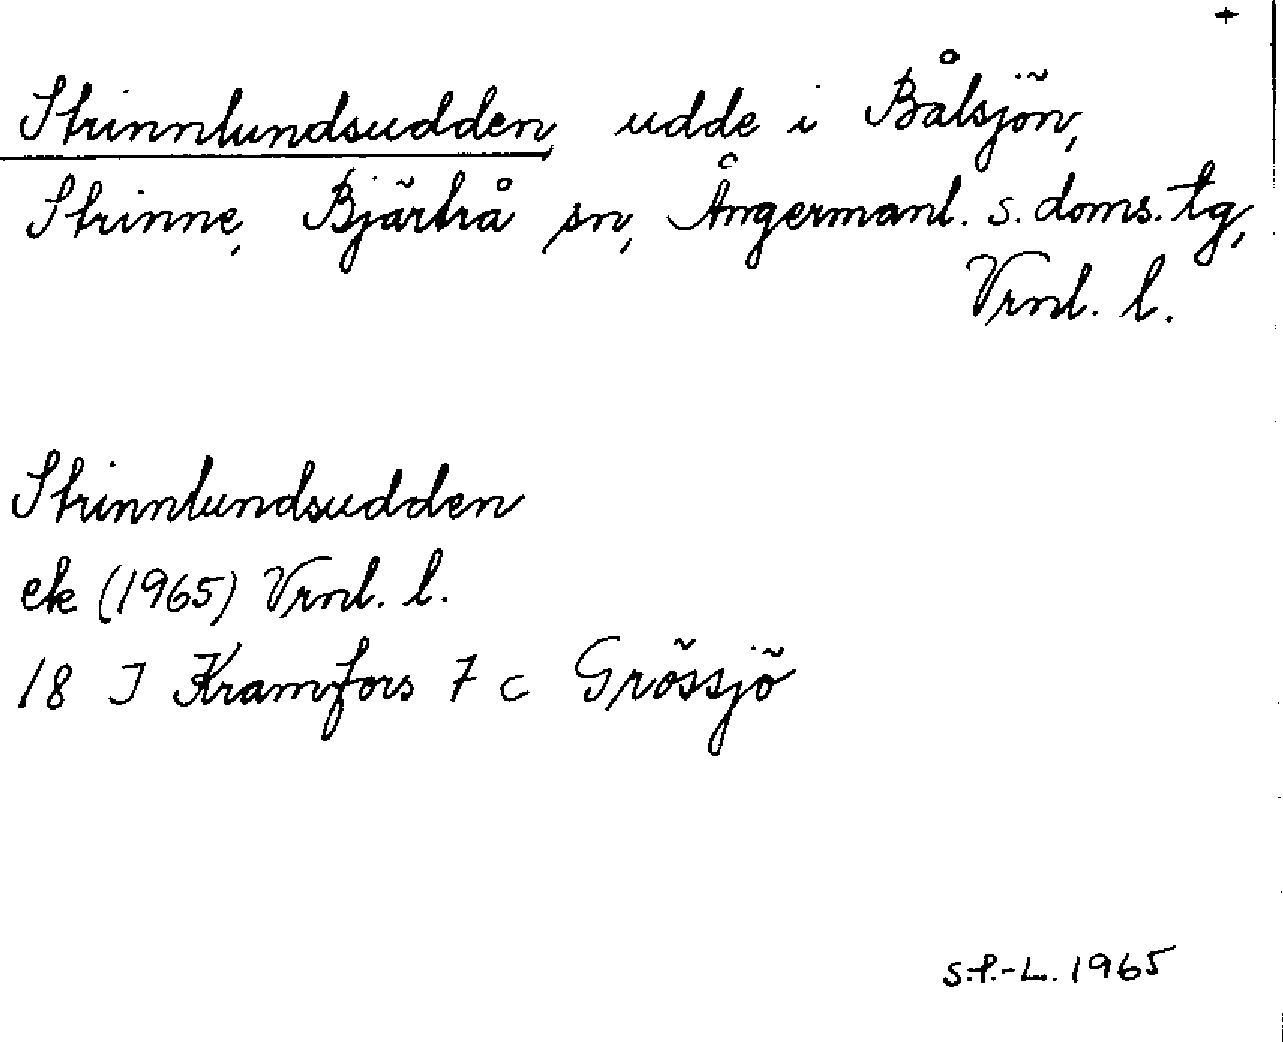 +
Strinnlundsudden udde i Bålsjön,
Strinne, Bjärtrå sn, Ångermanl. s. doms. tg,
Vrnl. l.
Strinnlundsudden
ek (1965) Vrnl. l.
18 I Kramfors 7 c Grössjö
S.P.-L. 1965